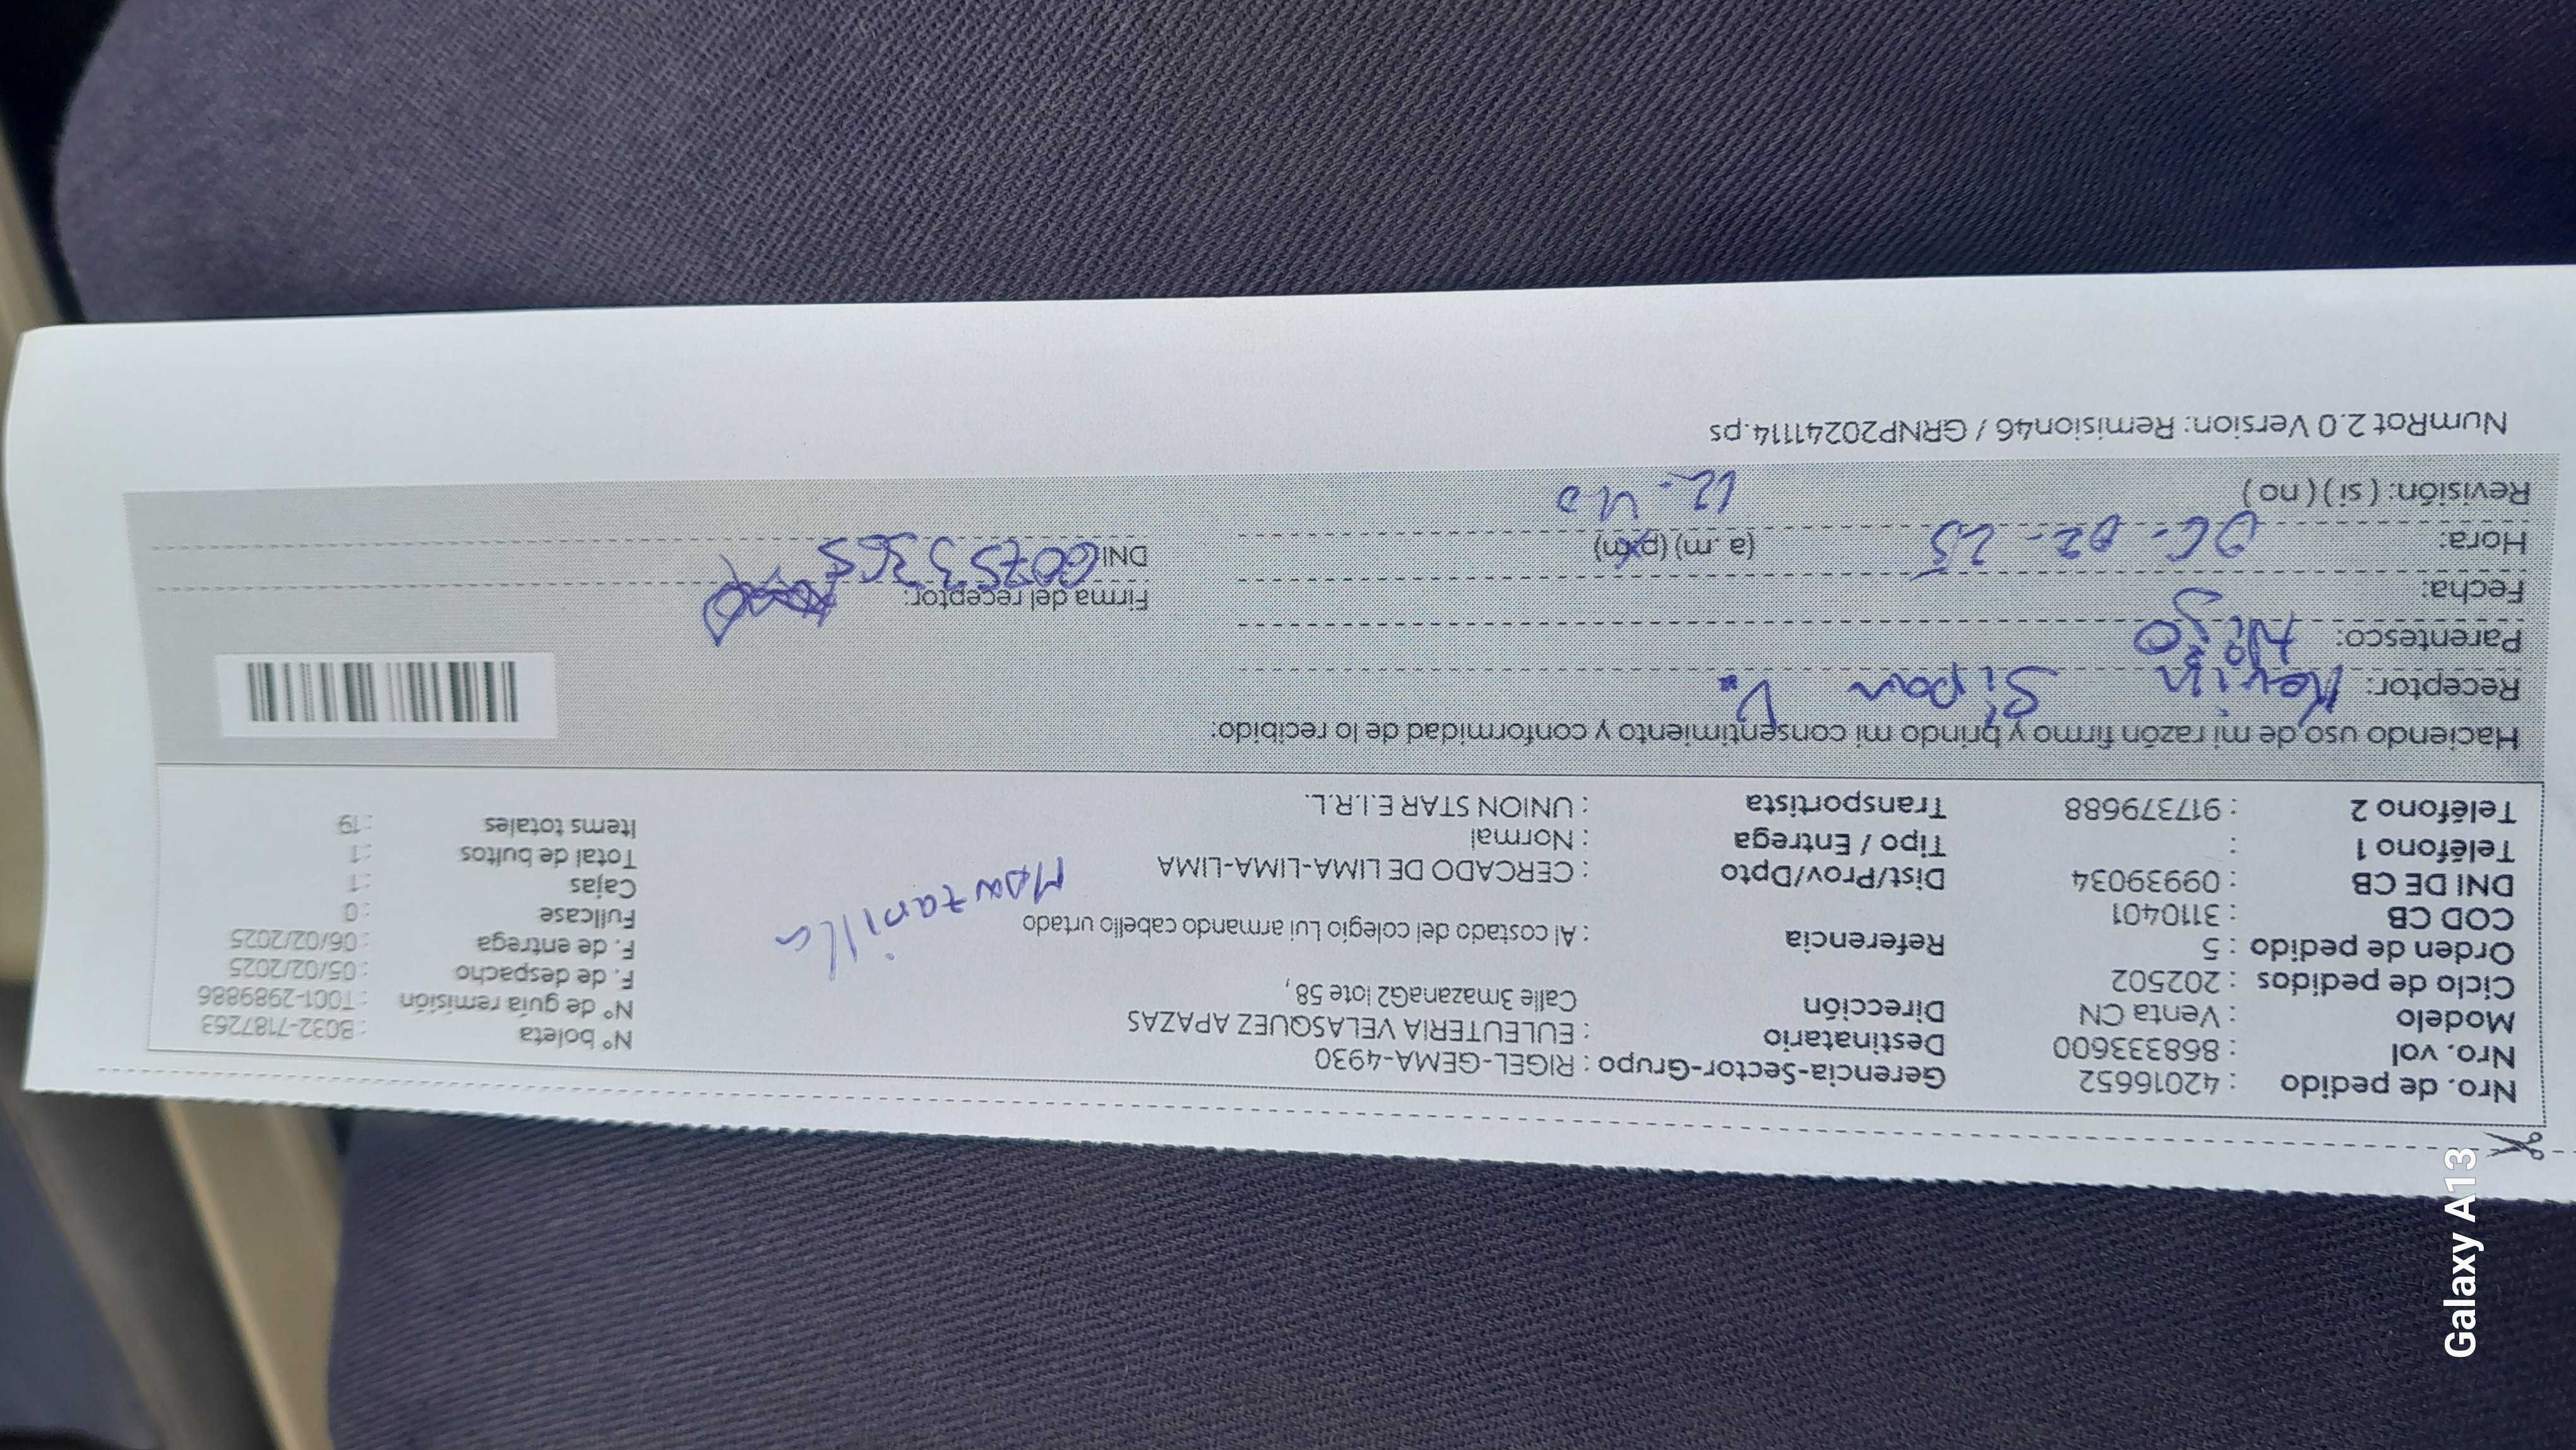 Nro. de pedido : 42016652 Gerencia-Sector-Grupo : RIGEL-GEMA-4930 N° boleta : B032-7187263
Nro. vol : 868333600 Destinatario : EULEUTERIA VELASQUEZ APAZAS N° de guía remisión : T001-2989886
Modelo : Venta CN Dirección Calle 3mazanaG2 lote 58, F. de despacho : 05/02/2025
Ciclo de pedidos : 202502 F. de entrega : 06/02/2025
Orden de pedido : 5 Referencia : Al costado del colegio Lui armando cabello urtado Fullcase : 0
COD CB : 3110401 Manzanilla
DNI DE CB : 09939034 Dist/Prov/Dpto : CERCADO DE LIMA-LIMA-LIMA Cajas : 1
Teléfono 1 : Tipo / Entrega : Normal Total de bultos : 1
Teléfono 2 : 917379688 Transportista : UNION STAR E.I.R.L. Items totales : 19
Haciendo uso de mi razón firmo y brindo mi consentimiento y conformidad de lo recibido:
Receptor: Kevin Sipan V.
Parentesco:
Fecha: 06-02-25 Firma del receptor:
Hora: (a.m) (p.m) 12-40 DNI 60753365
Revisión: (si) (no)
NumRot 2.0 Version: Remision46 / GRNP20241114.ps
Galaxy A13